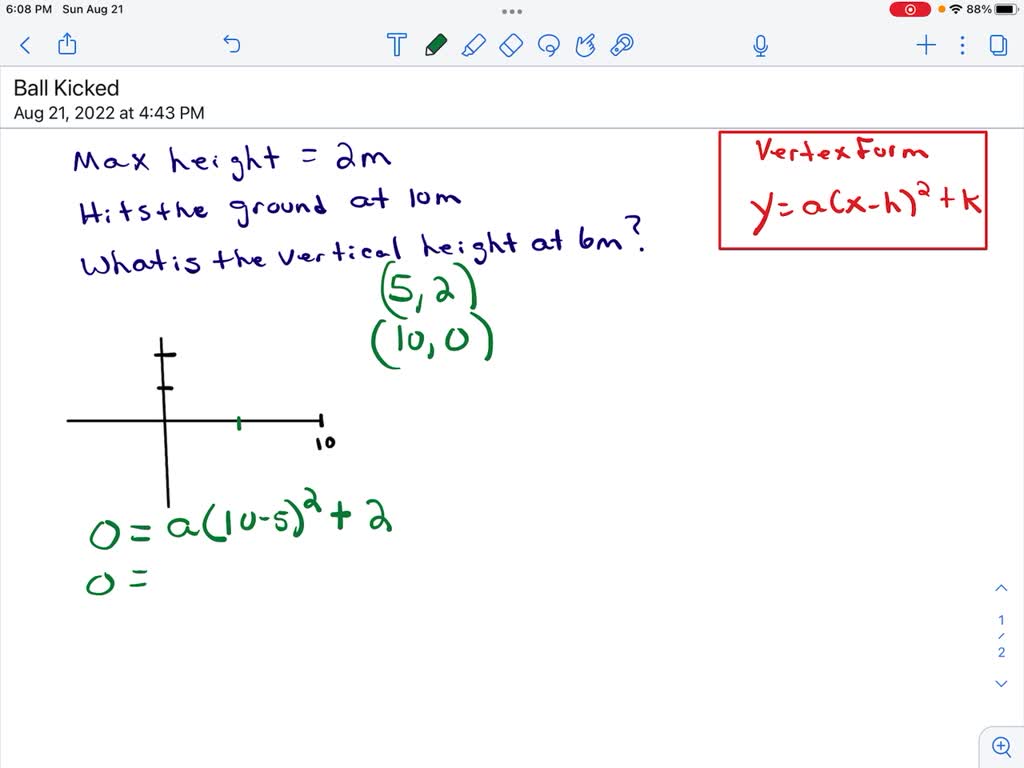 6:08 PM Sun Aug 21
88%
T
Ball Kicked
Aug 21, 2022 at 4:43 PM
Max height = 2m
Hits the ground at 10m
What is the vertical height at 6m?
Vertex Form
y = a(x-h)² + k
(5, 2)
(10, 0)
10
0 = a(10-5)² + 2
0 =
1
/
2